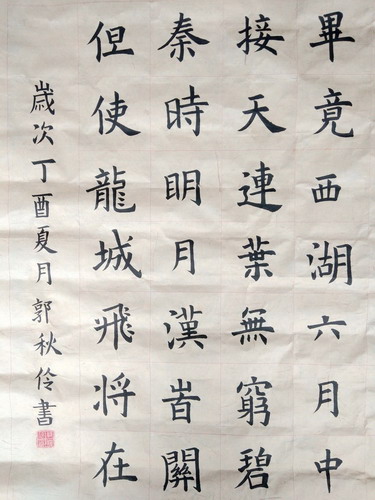 畢竟西湖六月中
接天連葉無窮碧
秦時明月漢旹關
但使龍城飛将在
歲次丁酉夏月郭秋伶書